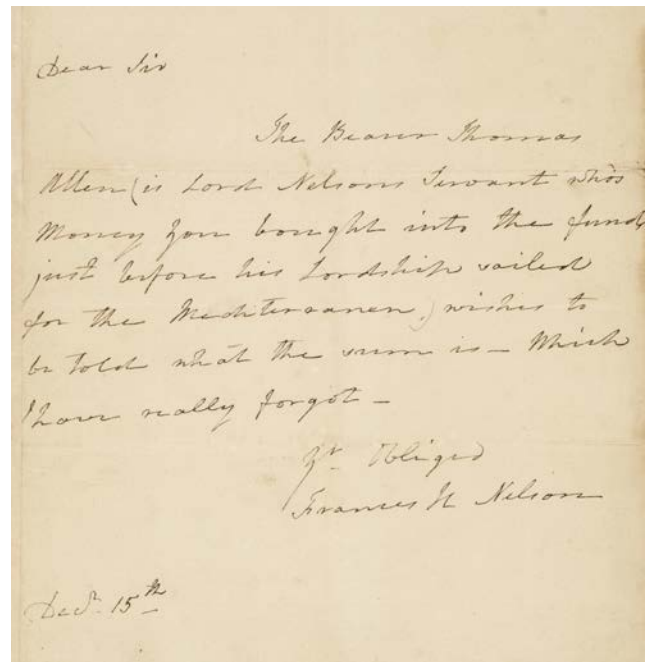 Dear Sir
The Bearer Thomas
Allen (is Lord Nelsons Servant who's
Money you bought into the funds
just before his Lordship sailed
for the Mediterranen,) wishes to
be told what the sum is – Which
I have really forgot –
Yr. Obliged
Frances H Nelson
Decr. 15th